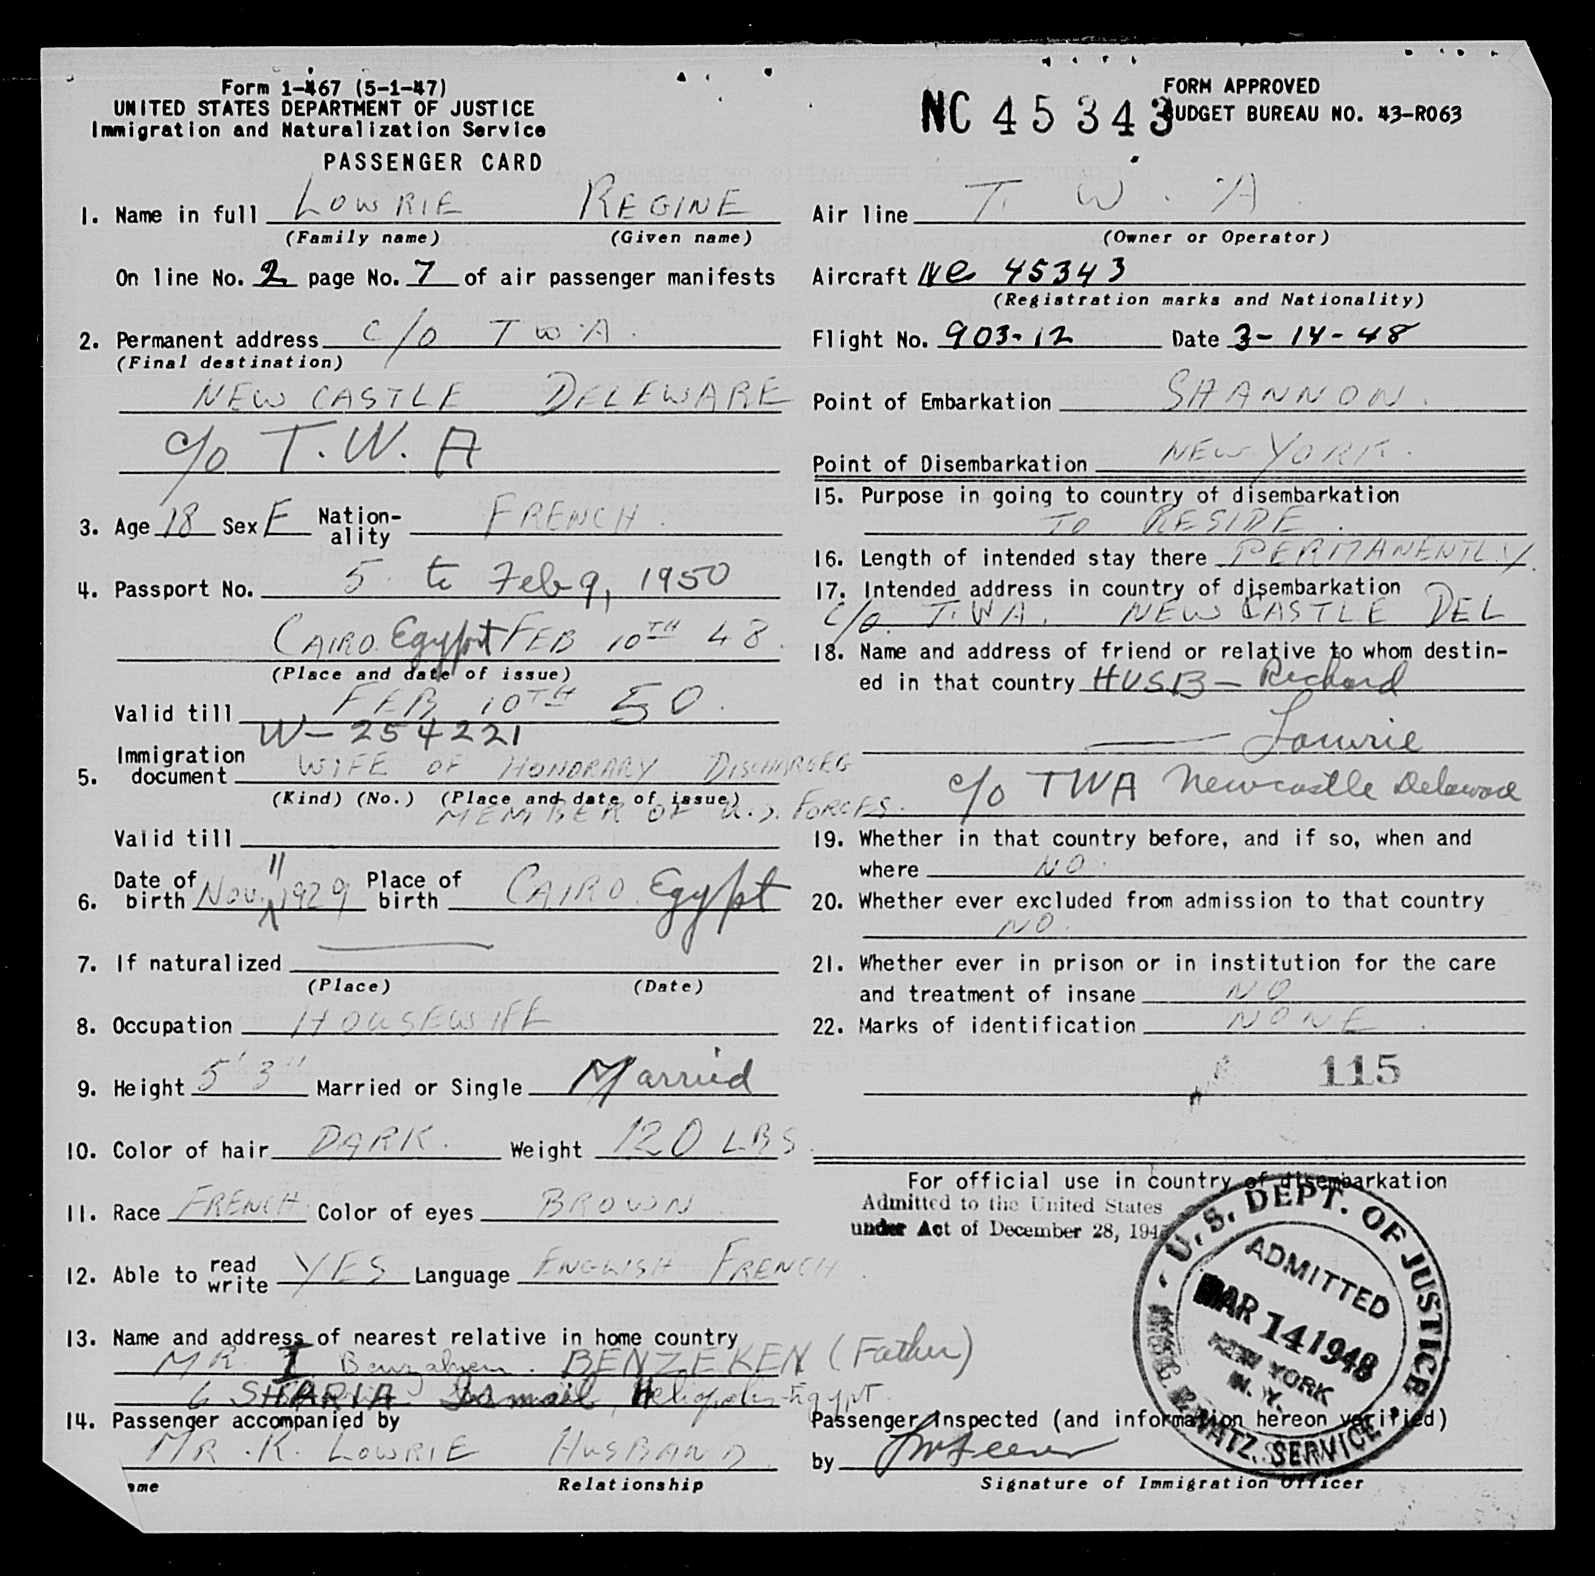 Form 1-467 (5-1-47)
UNITED STATES DEPARTMENT OF JUSTICE
Immigration and Naturalization Service
PASSENGER CARD
NC 45343
FORM APPROVED
BUDGET BUREAU NO. 43-R063
1. Name in full LOWRIE REGINE
(Family name) (Given name)
On line No. 2 page No. 7 of air passenger manifests
2. Permanent address C/O T W A.
(Final destination)
NEW CASTLE DELEWARE
c/o T. W. A
3. Age 18 Sex F Nationality FRENCH.
4. Passport No. 5 to Feb 9, 1950
CAIRO. Egyppt FEB 10TH 48.
(Place and date of issue)
Valid till FEB 10TH 50.
W-254221
5. Immigration document WIFE OF HONORARY DISCHARGEG
(Kind) (No.) (Place and date of issue)
MEMBER OF U.S. FORCES.
Valid till
6. Date of birth Nov. 11 1929 Place of birth CAIRO. Egypt
7. If naturalized
(Place) (Date)
8. Occupation HOUSEWIFE
9. Height 5' 3" Married or Single Married
10. Color of hair DARK. Weight 120 LBS.
11. Race FRENCH Color of eyes BROWN
12. Able to read write YES Language ENGLISH FRENCH.
13. Name and address of nearest relative in home country
MR. I BENZEKEN (Father)
6 SHARIA Ismail, Heliopolis-Egypt.
14. Passenger accompanied by
MR. R. LOWRIE HUSBAND
ame Relationship
Air line T. W. A.
(Owner or Operator)
Aircraft NC 45343
(Registration marks and Nationality)
Flight No. 903-12 Date 3-14-48
Point of Embarkation SHANNON.
Point of Disembarkation NEW YORK.
15. Purpose in going to country of disembarkation
TO RESIDE.
16. Length of intended stay there PERMANENTLY.
17. Intended address in country of disembarkation
C/O. T.W.A. NEW CASTLE DEL
18. Name and address of friend or relative to whom destin-
ed in that country HUSB - Richard
Lowrie
c/o TWA Newcastle Delaware
19. Whether in that country before, and if so, when and
where NO.
20. Whether ever excluded from admission to that country
NO.
21. Whether ever in prison or in institution for the care
and treatment of insane NO
22. Marks of identification NONE.
115
For official use in country of disembarkation
Admitted to the United States
under Act of December 28, 194
U.S. DEPT. OF JUSTICE
ADMITTED
MAR 14 1948
NEW YORK
N. Y.
IMMIG. & NATZ. SERVICE
Passenger inspected (and information hereon verified)
by
Signature of Immigration Officer